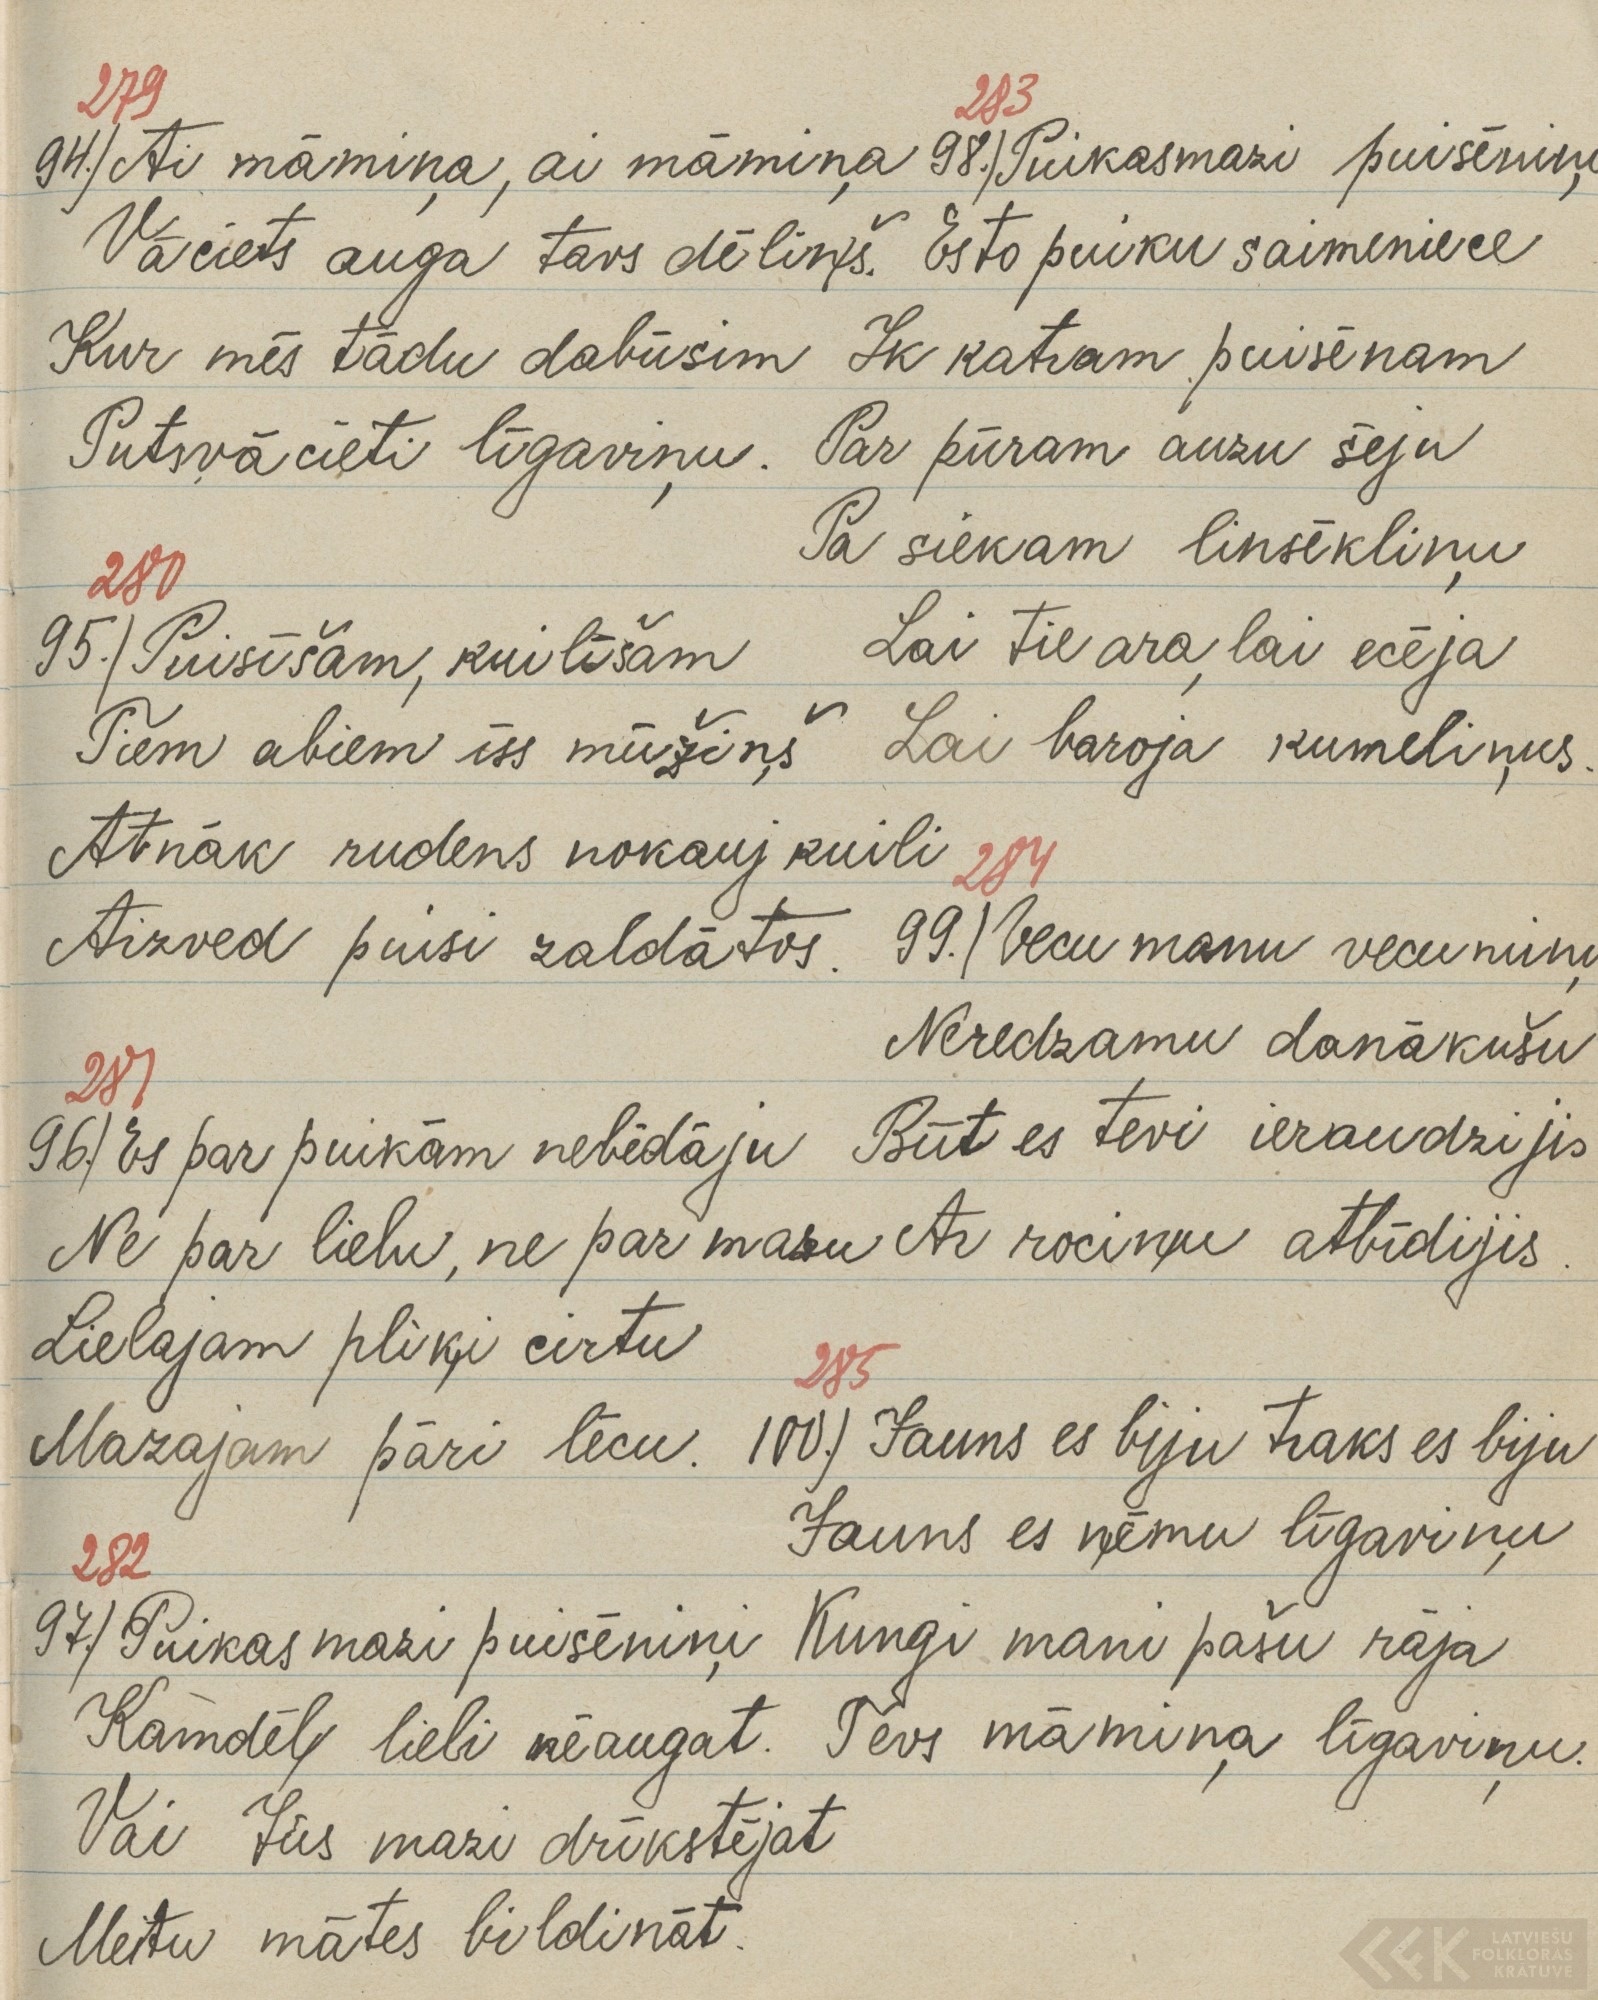 279
94.) Ai māmiņa, ai māmiņa
Vāciets auga tavs dēliņš.
Kur mēs tādu dabūsim
Putsvācieti līgaviņu.
280
95.) Puisīšam, kuilīšam
Tiem abiem īss mūžiņš
Atnāk rudens nokauj kuili
Aizved puisi zaldātos.
281
96.) Es par puikām nebēdāju
Ne par lielu, ne par mazu
Lielajam pliķi cirtu
Mazajam pāri lēcu.
282
97.) Puikas mazi puisēniņi
Kāmdēļ lieli nēaugat.
Vai Jūs mazi drīkstējat
Meitu mātes bildināt.
283
98.) Puikasmazi puisēniņ
Es to puiku saimeniece
Ik katram puisēnam
Par pūram auzu šeju
Pa siekam linsēkliņu
Lai tie ara, lai ecēja
Lai baroja kumeliņus.
284
99.) Vecu manu vecumiņu
Neredzamu danākušu
Būt es tevi ieraudzijis
Ar rociņu atbīdijis.
285
100.) Jauns es biju traks es biju
Jauns es ņēmu līgaviņu
Kungi mani pašu rāja
Tēvs māmiņa līgaviņu.
LATVIEŠU
FOLKLORAS
KRĀTUVE